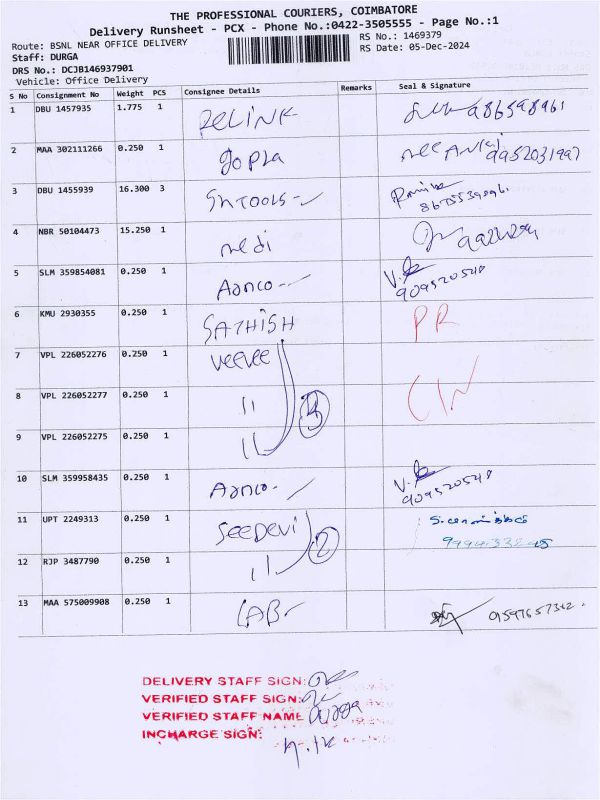 THE PROFESSIONAL COURIERS, COIMBATORE
Delivery Runsheet - PCX - Phone No.:0422-3505555 - Page No.:1
Route: BSNL NEAR OFFICE DELIVERY
RS No.: 1469379
Staff: DURGA
RS Date: 05-Dec-2024
DRS No.: DCJB146937901
Vehicle: Office Delivery
S No Consignment No Weight PCS Consignee Details Remarks Seal & Signature
1 DBU 1457935 1.775 1 RELINK
2 MAA 302111266 0.250 1 gopla 9952031997
3 DBU 1455939 16.300 3 SKTOOLS
4 NBR 50104473 15.250 1 medi
5 SLM 359854081 0.250 1 Aanco V.K 9095520548
6 KMU 2930355 0.250 1 SATHISH PR
7 VPL 226052276 0.250 1 veevee
8 VPL 226052277 0.250 1 11 3
9 VPL 226052275 0.250 1 11
10 SLM 359958435 0.250 1 Aanco V.K 9095520548
11 UPT 2249313 0.250 1 SeeDevi
12 RJP 3487790 0.250 1 11 2
13 MAA 575009908 0.250 1 LAB 9597657362
DELIVERY STAFF SIGN:
VERIFIED STAFF SIGN:
VERIFIED STAFF NAME Durga
INCHARGE SIGN: